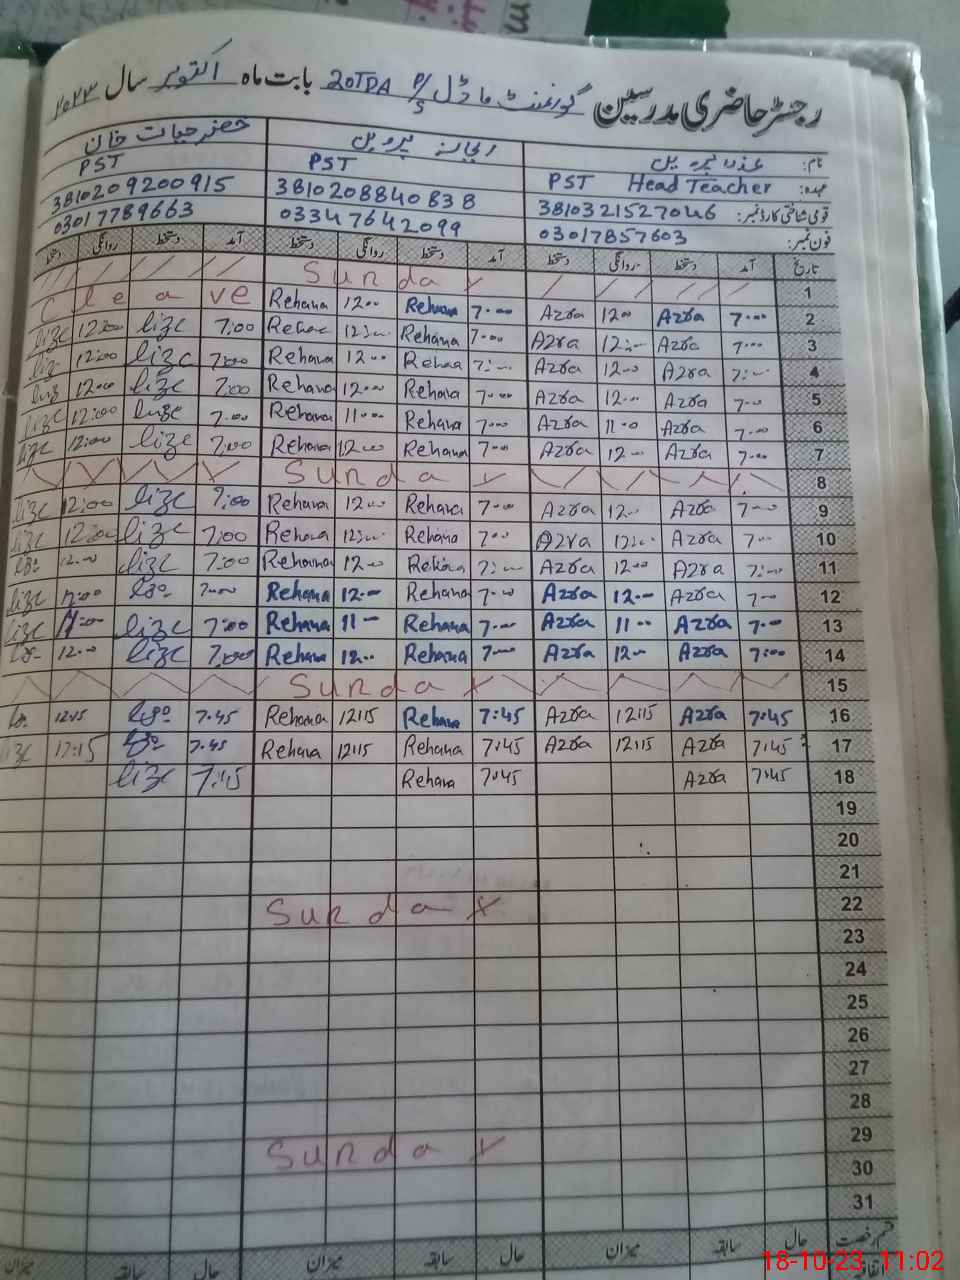 رجسٹر حاضری مدرسین گورنمنٹ ماڈل P/S 20TDA بابت ماہ اکتوبر سال ۲۰۲۳
نام: عذرا پروین ریحانہ پروین خضر حیات خان
عہدہ: PST Head Teacher PST PST
قومی شناختی کارڈ نمبر: 3810321527046 3810208840838 3810209200915
فون نمبر: 03017857603 03347642099 03017789663
تاریخ آمد دستخط روانگی دستخط آمد دستخط روانگی دستخط آمد دستخط روانگی دستخط
Sunday 1
C leave Rehana 12:00 Rehana 7:00 Azra 12:00 Azra 7:00 2
12:00 7:00 Rehana 12:00 Rehana 7:00 Azra 12:00 Azra 7:00 3
12:00 7:00 Rehana 12:00 Rehana 7:00 Azra 12:00 Azra 7:00 4
12:00 7:00 Rehana 12:00 Rehana 7:00 Azra 12:00 Azra 7:00 5
12:00 7:00 Rehana 11:00 Rehana 7:00 Azra 11:00 Azra 7:00 6
12:00 7:00 Rehana 12:00 Rehana 7:00 Azra 12:00 Azra 7:00 7
Sunday 8
12:00 7:00 Rehana 12:00 Rehana 7:00 Azra 12:00 Azra 7:00 9
12:00 7:00 Rehana 12:00 Rehana 7:00 Azra 12:00 Azra 7:00 10
12:00 7:00 Rehana 12:00 Rehana 7:00 Azra 12:00 Azra 7:00 11
12:00 7:00 Rehana 12:00 Rehana 7:00 Azra 12:00 Azra 7:00 12
11:00 7:00 Rehana 11:00 Rehana 7:00 Azra 11:00 Azra 7:00 13
12:00 7:00 Rehana 12:00 Rehana 7:00 Azra 12:00 Azra 7:00 14
Sunday 15
12:15 7:45 Rehana 12:15 Rehana 7:45 Azra 12:15 Azra 7:45 16
12:15 7:45 Rehana 12:15 Rehana 7:45 Azra 12:15 Azra 7:45 17
7:45 Rehana 7:45 Azra 7:45 18
19
20
21
Sunday 22
23
24
25
26
27
28
Sunday 29
30
31
قسم رخصت حال سابقہ میزان حال سابقہ میزان حال سابقہ میزان
18-10-23 11:02